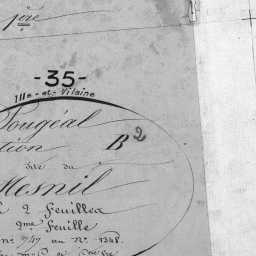 1ère
- 35 -
Ille - et - Vilaine
Fougéal
tion B2
dite du
Mesnil
2 Feuilles
2me Feuille
nos 747 au No 1348